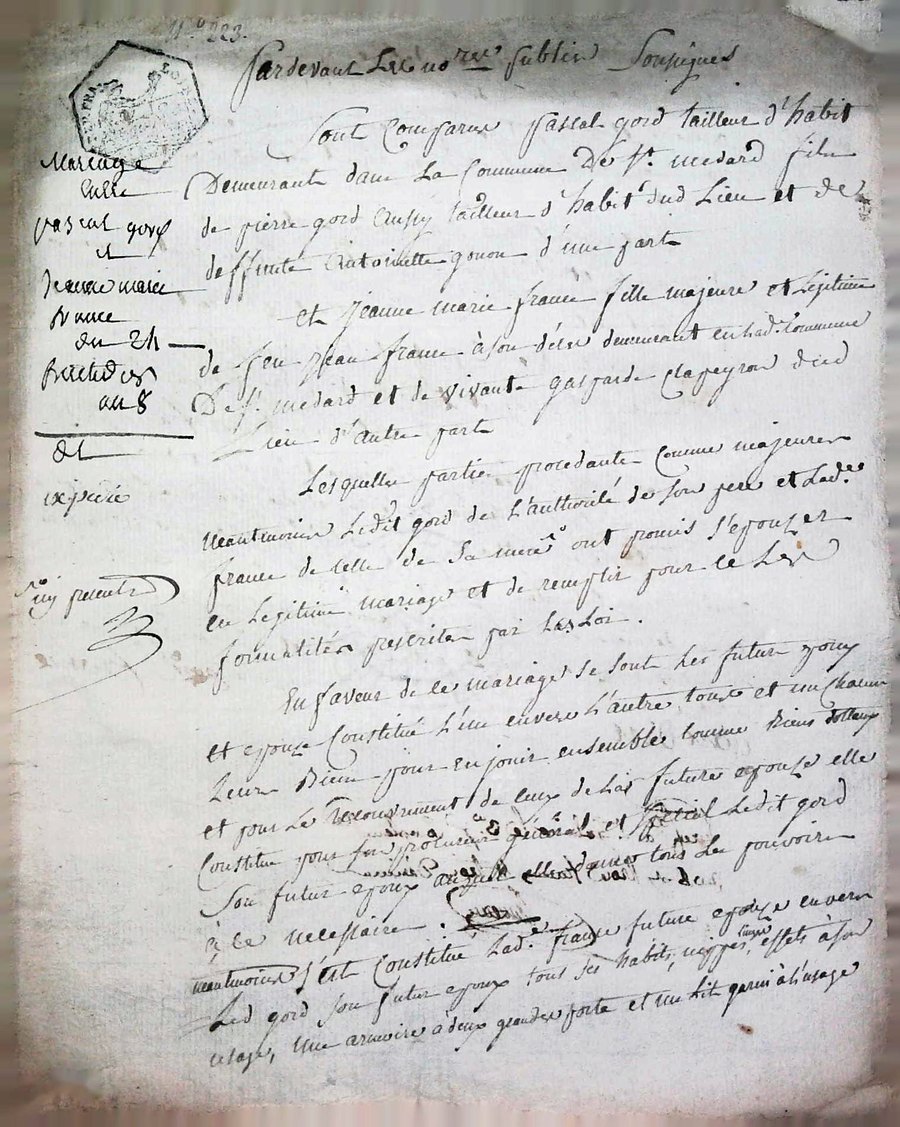 N.º 223.
Pardevant Les no.res publics Soussignés
Mariage
entre
pascal gord
et
Jeanne marie
france
du 21
fructidor
an 8
et
expedié
ici presente
Sont Comparus pascal gord tailleur d'habit
Demeurant dans La Commune De St. medard fils
de pierre gord aussy tailleur d'habit dud Lieu et de
deffunte Antoinette gonon d'une part
et Jeanne marie france fille majeure et Légitime
de feu Jean france à son décès demeurant en lad.e Commune
De St. medard et de vivante gasparde Clapeyron dud
Lieu d'autre part
Lesquelles parties procédantes Comme majeures
neantmoins Ledit gord de L'authorité de son pere et Lad.e
france de celle de Sa mere ont promis S'epouser
en Legitime mariage et de remplir pour ce Les
formalités prescrites par Les Loi.
En faveur de ce mariage Se Sont Les futurs epoux
et epouse Constitué L'un envers L'autre tous et un Chacun
Leurs Biens pour en jouir ensemble Comme Biens dottaux
et pour Le recouvrement de ceux de La future epouse elle
Constitue pour son procureur général et special Ledit gord
Son futur epoux auquel elle donne tous Les pouvoirs
à ce necessaires.
neantmoins S'est Constitué Lad.e france future epouse envers
Led gord son futur epoux tous ses habits, nippes, linges effets à son
usage, une armoire à deux grandes porte et un Lit garni à l'usage